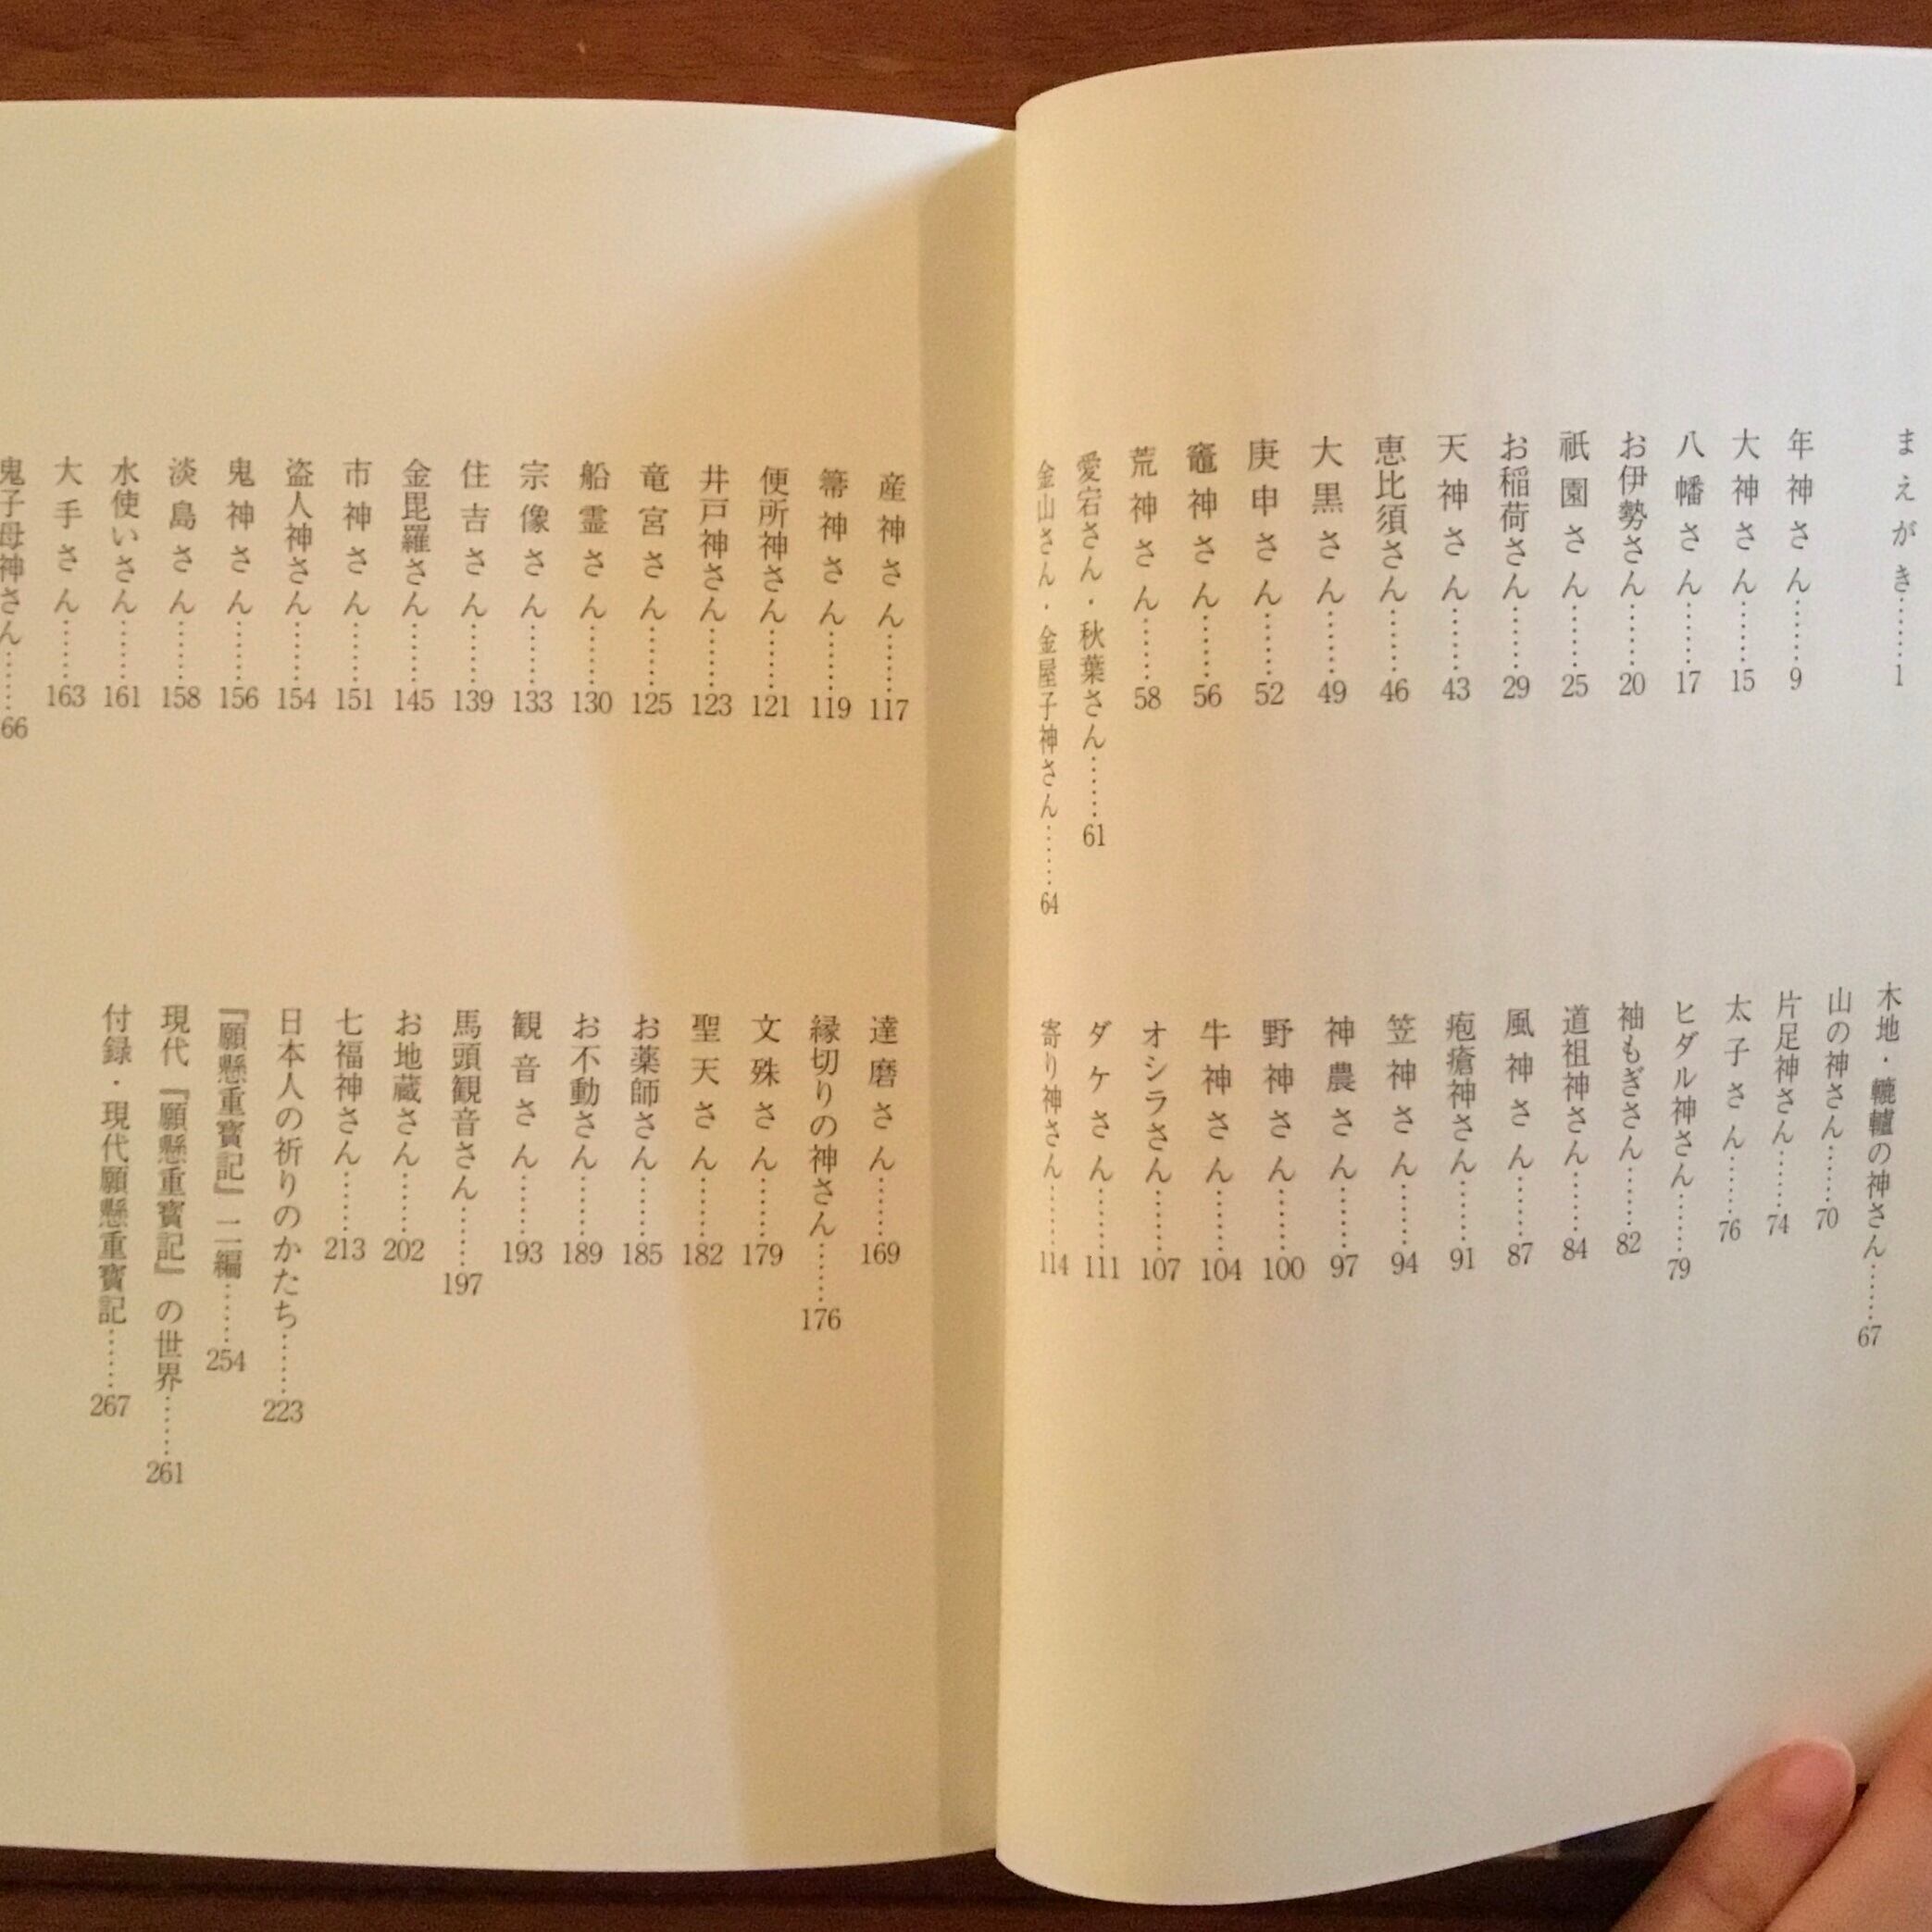 まえがき……1
年神さん……9
大神さん……15
八幡さん……17
お伊勢さん……20
祇園さん……25
お稲荷さん……29
天神さん……43
恵比須さん……46
大黒さん……49
庚申さん……52
竈神さん……56
荒神さん……58
愛宕さん・秋葉さん……61
金山さん・金屋子神さん……64
木地・轆轤の神さん……67
山の神さん……70
片足神さん……74
太子さん……76
ヒダル神さん……79
袖もぎさん……82
道祖神さん……84
風神さん……87
疱瘡神さん……91
笠神さん……94
神農さん……97
野神さん……100
牛神さん……104
オシラさん……107
ダケさん……111
寄り神さん……114
産神さん……117
箒神さん……119
便所神さん……121
井戸神さん……123
竜宮さん……125
船霊さん……130
宗像さん……133
住吉さん……139
金毘羅さん……145
市神さん……151
盗人神さん……154
鬼神さん……156
淡島さん……158
水使いさん……161
大手さん……163
鬼子母神さん……66
達磨さん……169
縁切りの神さん……176
文殊さん……179
聖天さん……182
お薬師さん……185
お不動さん……189
観音さん……193
馬頭観音さん……197
お地蔵さん……202
七福神さん……213
日本人の祈りのかたち……223
『願懸重寳記』二編……254
現代『願懸重寳記』の世界……261
付録・現代願懸重寳記……267